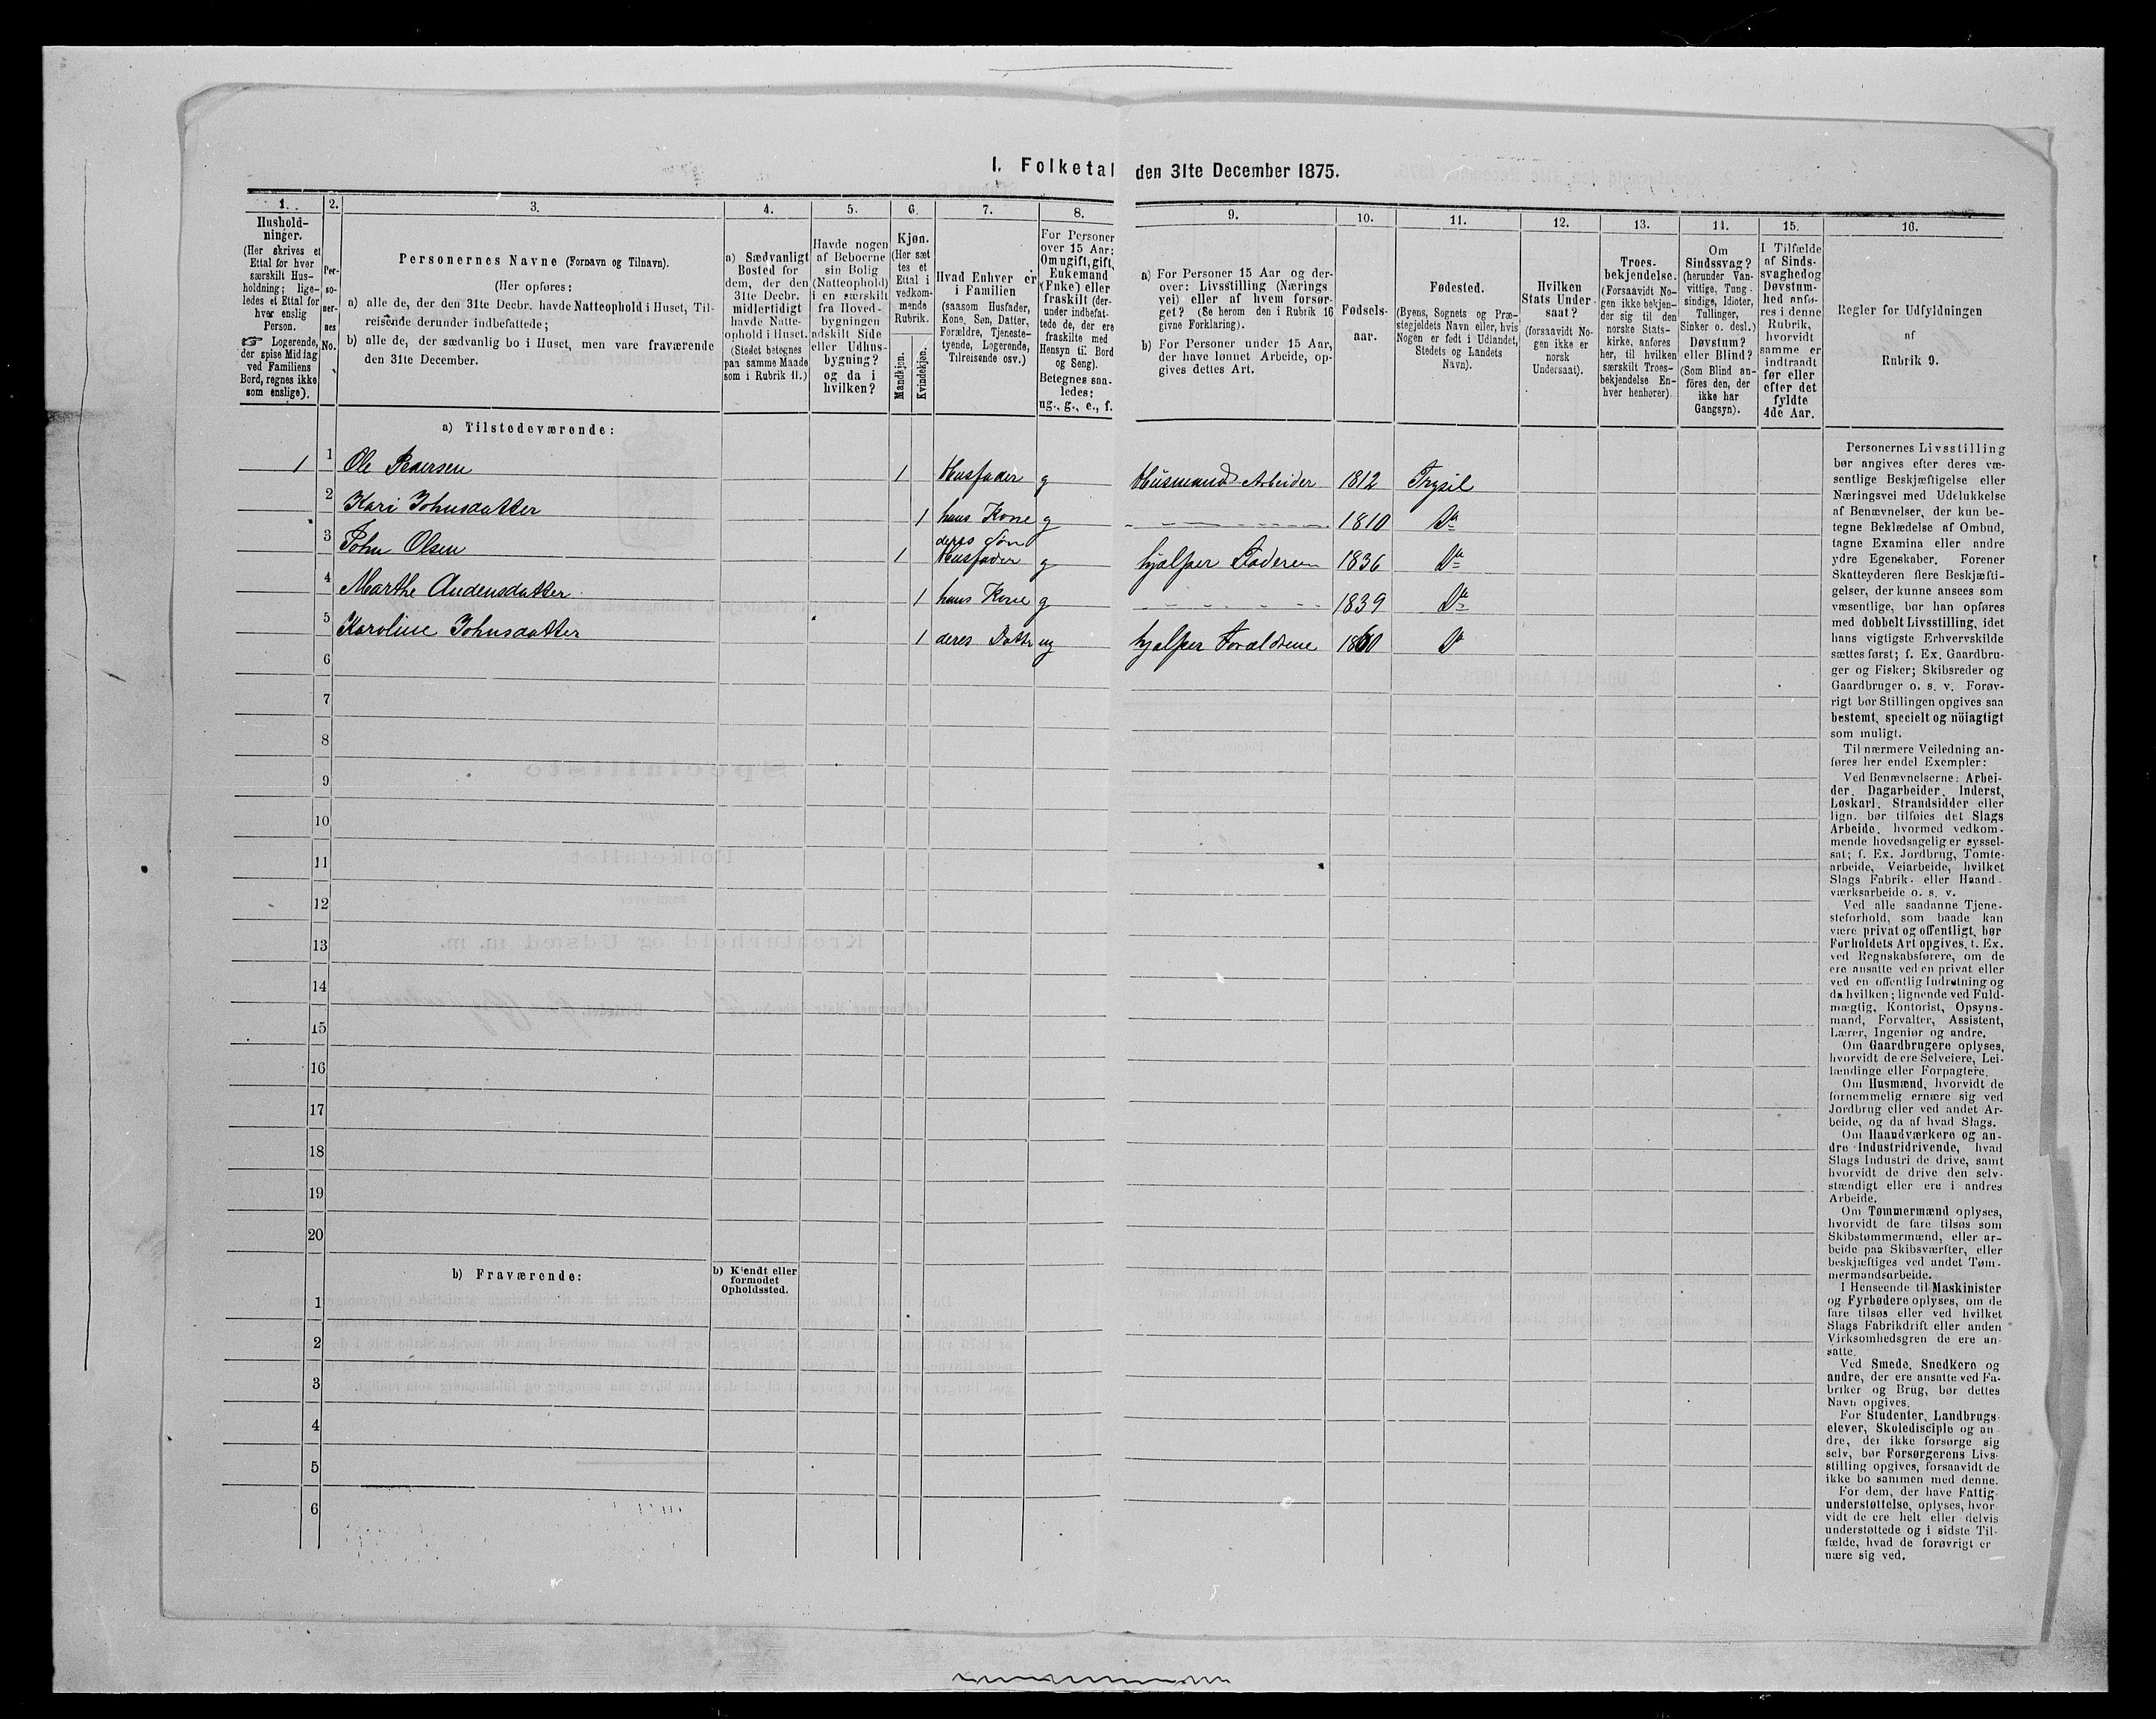 I. Folketal den 31te December 1875.
1.
Hushold-
ninger.
(Her skrives et
Ettal for hver
særskilt Hus-
holdning; lige-
ledes et Ettal for
hver enslig
Person.
☞ Logerende,
der spise Middag
ved Familiens
Bord, regnes ikke
som enslige).
2.
Per-
so-
ner-
nes
No.
3.
Personernes Navne (Fornavn og Tilnavn).
(Her opføres:
a) alle de, der den 31te Decbr. havde Natteophold i Huset, Til-
reisende derunder indbefattede;
b) alle de, der sædvanlig bo i Huset, men vare fraværende
den 31te December.
4.
a) Sædvanligt
Bosted for
dem, der den
31te Decbr.
midlertidigt
havde Natte-
ophold i Huset.
(Stedet betegnes
paa samme Maade
som i Rubrik 11.)
5.
Havde nogen
af Beboerne
sin Bolig
(Natteophold)
i en særskilt
fra Hoved-
bygningen
adskilt Side
eller Udhus-
bygning?
og da i
hvilken?
6.
Kjøn.
(Her sæt
tes et
Ettal i
vedkom-
mende
Rubrik.
Mandkjøn.
Kvindekjøn.
7.
Hvad Enhver er
i Familien
(saasom Husfader,
Kone, Søn, Datter,
Forældre, Tjeneste-
tyende, Logerende,
Tilreisende osv.)
8.
For Personer
over 15 Aar:
Om ugift, gift,
Enkemand
(Enke) eller
fraskilt (der-
under indbefat-
tede de, der ere
fraskilte med
Hensyn til Bord
og Seng).
Betegnes saa-
ledes:
ug., g., e., f.
9.
a) For Personer 15 Aar og der-
over: Livsstilling (Nærings
vei) eller af hvem forsør-
get? (Se herom den i Rubrik 16
givne Forklaring).
b) For Personer under 15 Aar,
der have lønnet Arbeide, op-
gives dettes Art.
10.
Fødsels-
aar.
11.
Fødested.
(Byens, Sognets og Præ-
stegjeldets Navn eller, hvis
Nogen er født i Udlandet,
Stedets og Landets
Navn).
12.
Hvilken
Stats Under-
saat?
(forsaavidt No-
gen ikke er
norsk
Undersaat).
13.
Troes-
bekjendelse.
(Forsaavidt No-
gen ikke bekjen-
der sig til den
norske Stats-
kirke, anføres
her, til hvilken
særskilt Troes-
bekjendelse En-
hver henhører).
11.
Om
Sindssvag?
(herunder Van-
vittige, Tung-
sindige, Idioter,
Tullinger,
Sinker o. desl.)
Døvstum?
eller Blind?
(Som Blind an-
føres den, der
ikke har
Gangsyn).
15.
I Tilfælde
af Sinds-
svaghed og
Døvstum-
hed anfø-
res i denne
Rubrik,
hvorvidt
samme er
indtraadt
før eller
efter det
fyldte
4de Aar.
16.
Regler for Udfyldningen
af
Rubrik 9.
a) Tilstedeværende:
1 1 Ole Pedersen 1 Husfader g Husmand Arbeider 1812 Trysil
2 Kari Johnsdatter 1 hans Kone g 1810 Do
3 John Olsen 1 deres Søn
Husfader g hjælper Faderen 1836 Do
4 Marthe Audensdatter 1 hans Kone g 1839 Do
5 Karoline Johnsdatter 1 deres Datter ug hjælper Forældrene 1860 Do
6
7
8
9
10
11
12
13
14
15
16
17
18
19
20
b) Fraværende:
b) Kjendt eller
formodet
Opholdssted.
1
2
3
4
5
6
Personernes Livsstilling
bør angives efter deres væ-
sentlige Beskjæftigelse eller
Næringsvei med Udelukkelse
af Benævnelser, der kun be-
tegne Beklædelse af Ombud,
tagne Examina eller andre
ydre Egenskaber. Forener
Skatteyderen flere Beskjæfti-
gelser, der kunne ansees som
væsentlige, bør han opføres
med dobbelt Livsstilling, idet
hans vigtigste Erhvervskilde
sættes først; f. Ex. Gaardbru-
ger og Fisker; Skibsreder og
Gaardbruger o. s. v. Forøv-
rigt bør Stillingen opgives saa
bestemt, specielt og nöiagtigt
som muligt.
Til nærmere Veiledning an-
føres her endel Exempler:
Ved Benævnelserne: Arbei-
der, Dagarbeider, Inderst,
Løskarl, Strandsidder eller
lign. bør tilføies det Slags
Arbeide, hvormed vedkom-
mende hovedsagelig er syssel-
sat; f. Ex. Jordbrug, Tomte-
arbeide, Veiarbeide, hvilket
Slags Fabrik- eller Haand-
værksarbeide o. s. v.
Ved alle saadanne Tjene-
steforhold, som baade kan
være privat og offentligt, bør
Forholdets Art opgives, t. Ex.
ved Regnskabsførere, om de
ere ansatte ved en privat eller
ved en offentlig Indretning og
da hvilken; lignende ved Fuld-
mægtig, Kontorist, Opsyns-
mand, Forvalter, Assistent,
Lærer, Ingeniør og andre.
Om Gaardbrugere oplyses,
hvorvidt de ere Selveiere, Lei-
lændinge eller Forpagtere.
Om Husmænd, hvorvidt de
fornemmelig ernære sig ved
Jordbrug eller ved andet Ar-
beide, og da af hvad Slags.
Om Haandværkere og an-
dre Industridrivende, hvad
Slags Industri de drive, samt
hvorvidt de drive den selv-
stændigt eller ere i andres
Arbeide.
Om Tømmermænd oplyses,
hvorvidt de fare tilsøs som
Skibstømmermænd, eller ar-
beide paa Skibsværfter, eller
beskjæftiges ved andet Tøm-
mermandsarbeide.
I Henseende til Maskinister
og Fyrbødere oplyses, om de
fare tilsøs eller ved hvilket
Slags Fabrikdrift eller anden
Virksomhedsgren de ere an-
satte.
Ved Smede, Snedkere og
andre, der ere ansatte ved Fa-
briker og Brug, bør dettes
Navn opgives.
For Studenter, Landbrugs-
elever, Skoledisciple og an-
dre, der ikke forsørge sig
selv, bør Forsørgerens Livs-
stilling opgives, forsaavidt de
ikke bo sammen med denne.
For dem, der have Fattig-
understøttelse, oplyses, hvor-
vidt de ere helt eller delvis
understøttede og i sidste Til-
fælde, hvad de forøvrigt er-
nære sig ved.